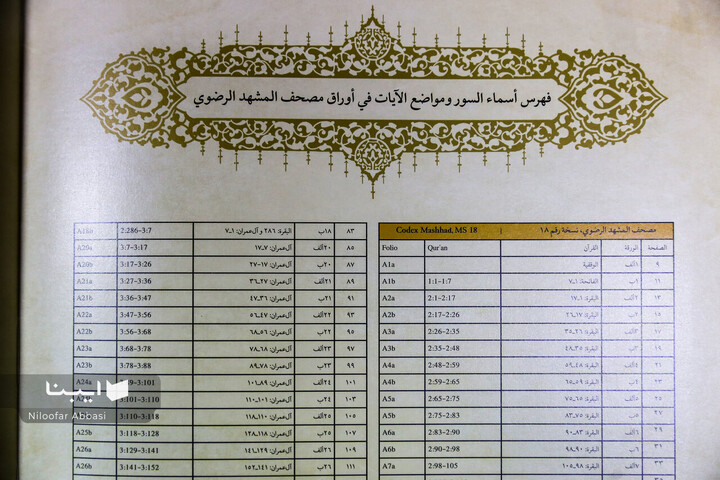 فهرس أسماء السور ومواضع الآيات في أوراق مصحف المشهد الرضوي
Codex Mashhad, MS 18 | مصحف المشهد الرضوي، نسخة رقم ١٨
Folio Qur'an القرآن الورقة الصفحة
A1a الوقفية ١ألف ٩
A1b 1:1-1:7 الفاتحة: ١ـ٧ ١ب ١١
A2a 2:1-2:17 البقرة: ١ـ١٧ ٢ألف ١٣
A2b 2:17-2:26 البقرة: ١٧ـ٢٦ ٢ب ١٥
A3a 2:26-2:35 البقرة: ٢٦ـ٣٥ ٣ألف ١٧
A3b 2:35-2:48 البقرة: ٣٥ـ٤٨ ٣ب ١٩
A4a 2:48-2:59 البقرة: ٤٨ـ٥٩ ٤ألف ٢١
A4b 2:59-2:65 البقرة: ٥٩ـ٦٥ ٤ب ٢٣
A5a 2:65-2:75 البقرة: ٦٥ـ٧٥ ٥ألف ٢٥
A5b 2:75-2:83 البقرة: ٧٥ـ٨٣ ٥ب ٢٧
A6a 2:83-2:90 البقرة: ٨٣ـ٩٠ ٦ألف ٢٩
A6b 2:90-2:98 البقرة: ٩٠ـ٩٨ ٦ب ٣١
A7a 2:98-105 البقرة: ٩٨ـ١٠٥ ٧ألف ٣٣
2:286-3:7 البقرة: ٢٨٦ و آل‌عمران: ١ـ٧ ١٨ب ٨٣
A20a 3:7-3:17 آل‌عمران: ٧ـ١٧ ٢٠ألف ٨٥
A20b 3:17-3:26 آل‌عمران: ١٧-٢٧ ٢٠ب ٨٧
A21a 3:27-3:36 آل‌عمران: ٢٧ـ٣٦ ٢١ألف ٨٩
A21b 3:36-3:47 آل‌عمران: ٣٧ـ٤٦ ٢١ب ٩١
A22a 3:47-3:56 آل‌عمران: ٤٧ـ٥٦ ٢٢ألف ٩٣
A22b 3:56-3:68 آل‌عمران: ٥٦ـ٦٨ ٢٢ب ٩٥
A23a 3:68-3:78 آل‌عمران: ٦٨ـ٧٨ ٢٣ألف ٩٧
A23b 3:78-3:88 آل‌عمران: ٧٨ـ٨٩ ٢٣ب ٩٩
A24a 3:101 آل‌عمران: ٨٩ـ١٠١ ٢٤ألف ١٠١
3:101-3:110 آل‌عمران: ١٠١ـ١١٠ ٢٤ب ١٠٣
3:110-3:118 آل‌عمران: ١١٠ـ١١٨ ٢٥ألف ١٠٥
A25b 3:118-3:128 آل‌عمران: ١١٨ـ١٢٨ ٢٥ب ١٠٧
A26a 3:129-3:141 آل‌عمران: ١٢٩ـ١٤١ ٢٦ألف ١٠٩
A26b 3:141-3:152 آل‌عمران: ١٤١ـ١٥٢ ٢٦ب ١١١
ایبنا
Niloofar Abbasi